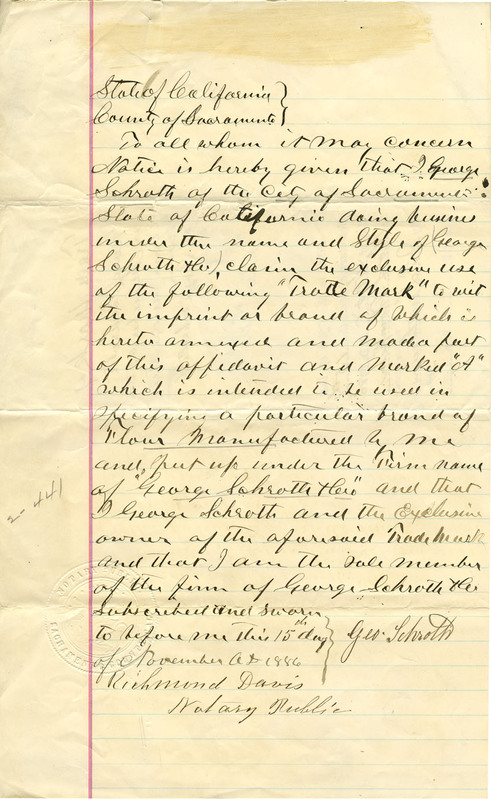 State of California }
County of Sacramento }
To all whom it may concern
Notice is hereby given that I, George
Schroth of the City of Sacramento
State of California doing business
under the name and Style of (George
Schroth & Co), claim the exclusive use
of the following "Trade Mark" to wit
the imprint or brand of which is
hereto annexed and made a part
of this affidavit and Marked "A"
which is intended to be used in
specifying a particular brand of
"Flour Manufactured by me
and put up under the Firm name
of "George Schroth & Co" and that
I George Schroth and the Exclusive
owner of the aforesaid Trade Mark
and that I am the sole member
of the firm of George Schroth & Co
Subscribed and sworn
to before me this 15th day } Geo. Schroth
of November AD 1886
Richmond Davis
Notary Public
2-441